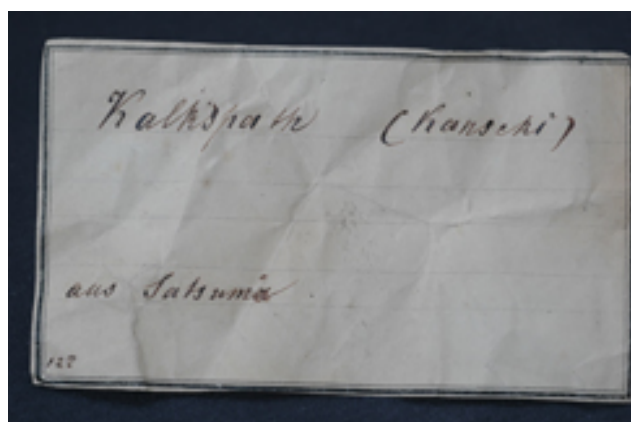 Kalkspath (Kanseki)
aus Satsuma
122